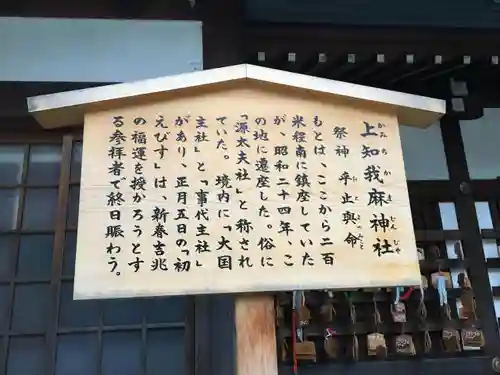 かみちかまじんじゃ
上知我麻神社
祭神 乎止與命
もとは、ここから二百
米程南に鎮座していた
が、昭和二十四年、こ
の地に遷座した。俗に
「源太夫社」と称され
ていた。境内に「大国
主社」と「事代主社」
があり、正月五日の「初
えびす」は、新春吉兆
の福運を授かろうとす
る参拝者で終日賑わう。